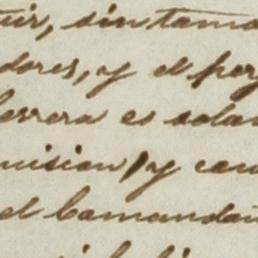 tuir, sin tama
dores, y el per
errera es solam
uision, y com
el Comandan